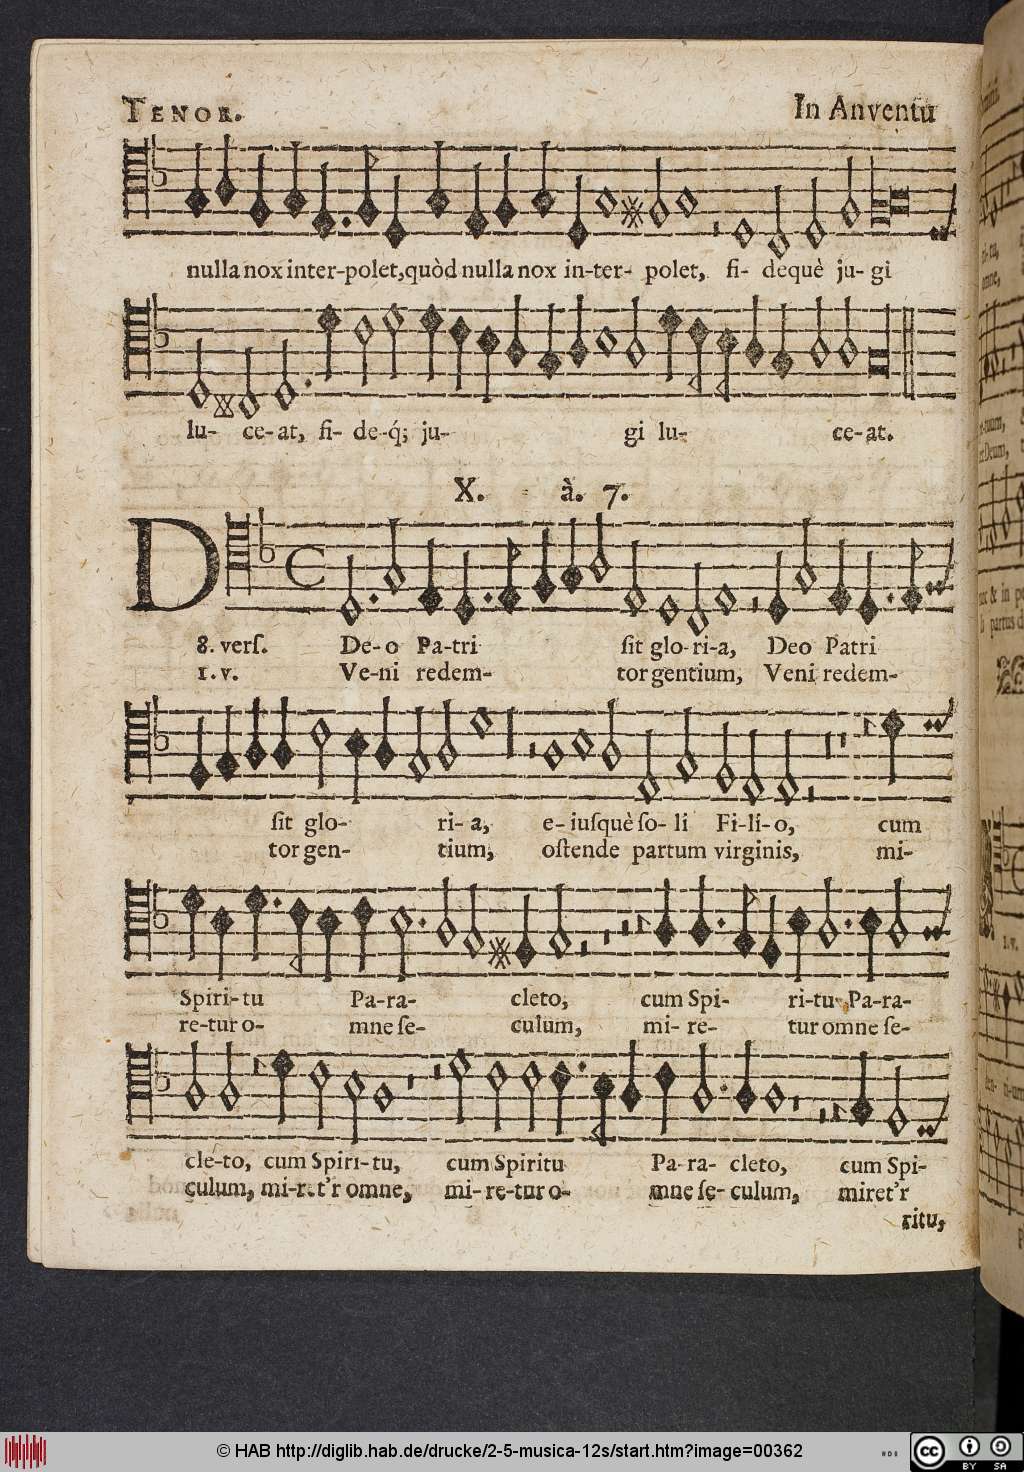 TENOR. In Anventu
nulla nox inter-polet,quòd nulla nox in-ter- polet, fi- dequè ju- gi
lu- ce-at, fi- de-q́; ju- gi lu- ce-at.
X. à. 7.
D
8. verſ. De-o Pa-tri ſit glo-ri-a, Deo Patri
1. v. Ve-ni redem- tor gentium, Veni redem-
ſit glo- ri- a, e- iuſquè ſo- li Fi-li-o, cum
tor gen- tium, oſtende partum virginis, mi-
Spiri-tu Pa-ra- cleto, cum Spi- ri-tu- Pa-ra-
re-tur o- mne ſe- culum, mi- re- tur omne ſe-
cle-to, cum Spiri-tu, cum Spiritu Pa-ra- cleto, cum Spi-
culum, mi-ret'r omne, mi- re-tur o- mne ſe- culum, miret'r
ritu,
© HAB http://diglib.hab.de/drucke/2-5-musica-12s/start.htm?image=00362
cc BY SA